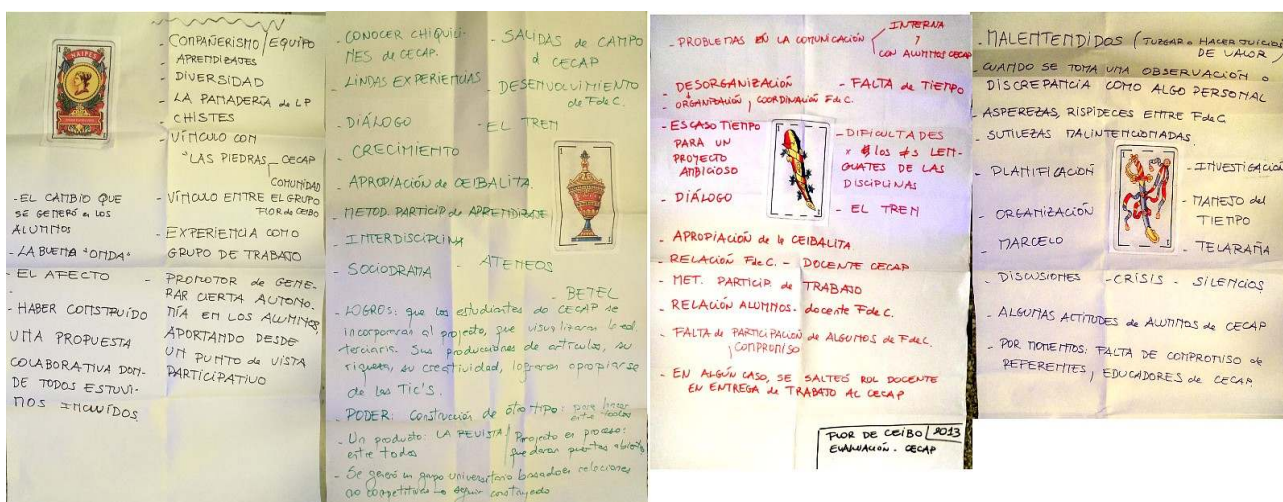 NAIPES
- COMPAÑERISMO / EQUIPO
- APRENDIZAJES
- DIVERSIDAD
- LA PANADERÍA de LP
- CHISTES
- VÍNCULO CON
"LAS PIEDRAS - CECAP
COMUNIDAD
- VÍNCULO ENTRE EL GRUPO
FLOR de CEIBO
- EXPERIENCIA COMO
GRUPO DE TRABAJO
- PROMOTOR de GENE-
RAR CIERTA AUTONO-
MÍA EN LOS ALUMNOS,
APORTANDO DESDE
UN PUNTO de VISTA
PARTICIPATIVO
- EL CAMBIO QUE
SE GENERÓ en LOS
ALUMNOS
- LA BUENA "ONDA"
- EL AFECTO
- HABER CONSTRUÍDO
UNA PROPUESTA
COLABORATIVA DON-
DE TODOS ESTUVI-
MOS INCLUÍDOS
- CONOCER CHIQUILI-
NES de CECAP.
- LINDAS EXPERIENCIAS
- DIÁLOGO
- CRECIMIENTO
- APROPIACIÓN de CEIBALITA
- METOD. PARTICIP de APRENDIZAJE
- INTERDISCIPLINA
- SOCIODRAMA
- SALIDAS de CAMPO
d CECAP
- DESENVOLVIMIENTO
de F de C.
- EL TREN
- ATENEOS
- BETEL
- LOGROS: que los estudiantes de CECAP se
incorporaran al proyecto, que visualizaran la ed.
terciaria. Sus producciones de artículos, su
riqueza, su creatividad, lograron apropiarse
de las Tic's.
- PODER: Construcción de otro tipo: para hacer
entre todos
- Un producto: LA REVISTA / Proyecto en proceso:
entre todos quedaron puertas abiertas
- Se generó un grupo universitario basado en relaciones
no competitivas a seguir construyendo
- PROBLEMAS EN LA COMUNICACIÓN
INTERNA
y
CON ALUMNOS CECAP
- DESORGANIZACIÓN
- ORGANIZACIÓN y COORDINACIÓN F de C.
- FALTA de TIEMPO
- ESCASO TIEMPO
PARA UN
PROYECTO
AMBICIOSO
- DIÁLOGO
- DIFICULTADES
x los ≠s LEN-
GUAJES DE LAS
DISCIPLINAS
- EL TREN
- APROPIACIÓN de la CEIBALITA
- RELACIÓN F de C. - DOCENTE CECAP
- MET. PARTICIP. de TRABAJO
- RELACIÓN ALUMNOS - docente F de C.
- FALTA de PARTICIPACIÓN de ALGUNOS de F de C.
y COMPROMISO
- EN ALGÚN CASO, SE SALTEÓ ROL DOCENTE
EN ENTREGA de TRABAJO AL CECAP
FLOR DE CEIBO 2013
EVALUACIÓN - CECAP
- MALENTENDIDOS (JUZGAR o HACER JUICIOS
DE VALOR)
- CUANDO SE TOMA UNA OBSERVACIÓN o
DISCREPANCIA COMO ALGO PERSONAL
- ASPEREZAS, RISPIDECES ENTRE F de C
- SUTILEZAS MALINTENCIONADAS
- PLANIFICACIÓN
- ORGANIZACIÓN
- MARCELO
- INVESTIGACIÓN
- MANEJO del
TIEMPO
- TELARAÑA
- DISCUSIONES - CRISIS - SILENCIOS
- ALGUNAS ACTITUDES de ALUMNOS de CECAP
- POR MOMENTOS: FALTA DE COMPROMISO de
REFERENTES, EDUCADORES de CECAP.